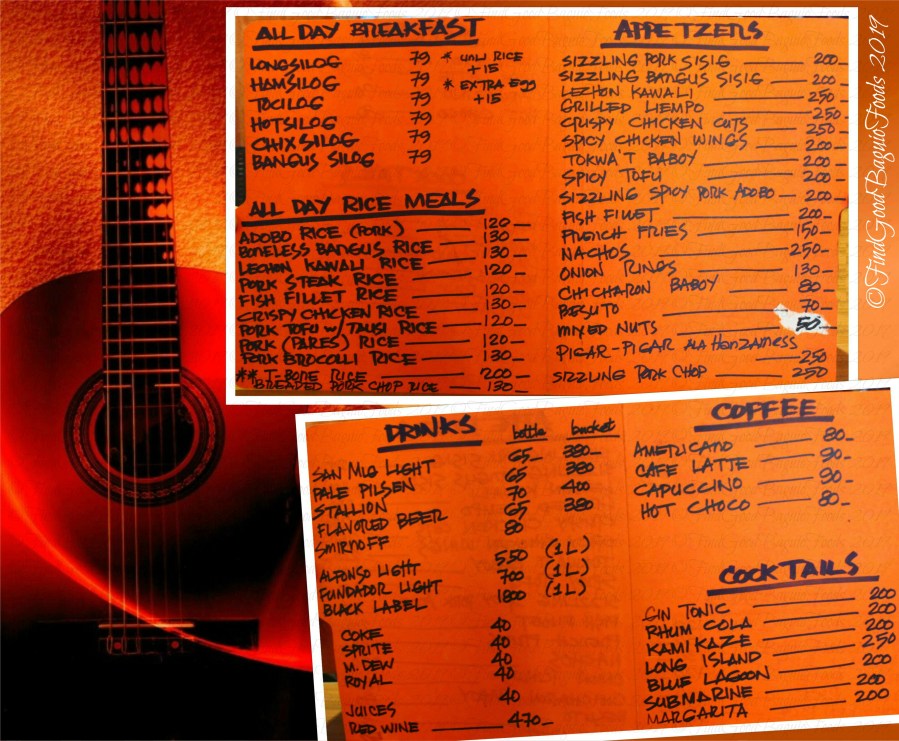 ALL DAY BREAKFAST
LONGSILOG 79 * UNLI RICE
+15
HAMSILOG 79 * EXTRA EGG
+15
TOCILOG 79
HOTSILOG 79
CHIXSILOG 79
BANGUS SILOG 79
ALL DAY RICE MEALS
ADOBO RICE (PORK) 120
BONELESS BANGUS RICE 130
LECHON KAWALI RICE 130
PORK STEAK RICE 120
FISH FILLET RICE 120
CRISPY CHICKEN RICE 130
PORK TOFU W/ TAUSI RICE 120
PORK (PARES) RICE 120
PORK BROCOLLI RICE 130
** T-BONE RICE 200
BREADED PORK CHOP RICE 130
APPETZERS
SIZZLING PORK SISIG 200
SIZZLING BANGUS SISIG 200
LECHON KAWALI 250
GRILLED LIEMPO 250
CRISPY CHICKEN CUTS 250
SPICY CHICKEN WINGS 200
TOKWA'T BABOY 200
SPICY TOFU 200
SIZZLING SPICY PORK ADOBO 200
FISH FILLET 200
FRENCH FRIES 150
NACHOS 250
ONION RINGS 130
CHICHARON BABOY 80
BESUTO 70
MIXED NUTS 50
PIGAR-PIGAR ALA HANZAMESS
250
SIZZLING PORK CHOP 250
©FindGoodBaguioFoods 2019
DRINKS bottle bucket
SAN MIG LIGHT 65 380
PALE PILSEN 65 380
STALLION 70 400
FLAVORED BEER 65 380
SMIRNOFF 80
ALFONSO LIGHT 550 (1L)
FUNDADOR LIGHT 700 (1L)
BLACK LABEL 1800 (1L)
COKE 40
SPRITE 40
M. DEW 40
ROYAL 40
JUICES 40
RED WINE 470
COFFEE
AMERICANO 80
CAFE LATTE 90
CAPUCCINO 90
HOT CHOCO 80
COCKTAILS
GIN TONIC 200
RHUM COLA 200
KAMIKAZE 200
LONG ISLAND 250
BLUE LAGOON 200
SUBMARINE 200
MARGARITA 200